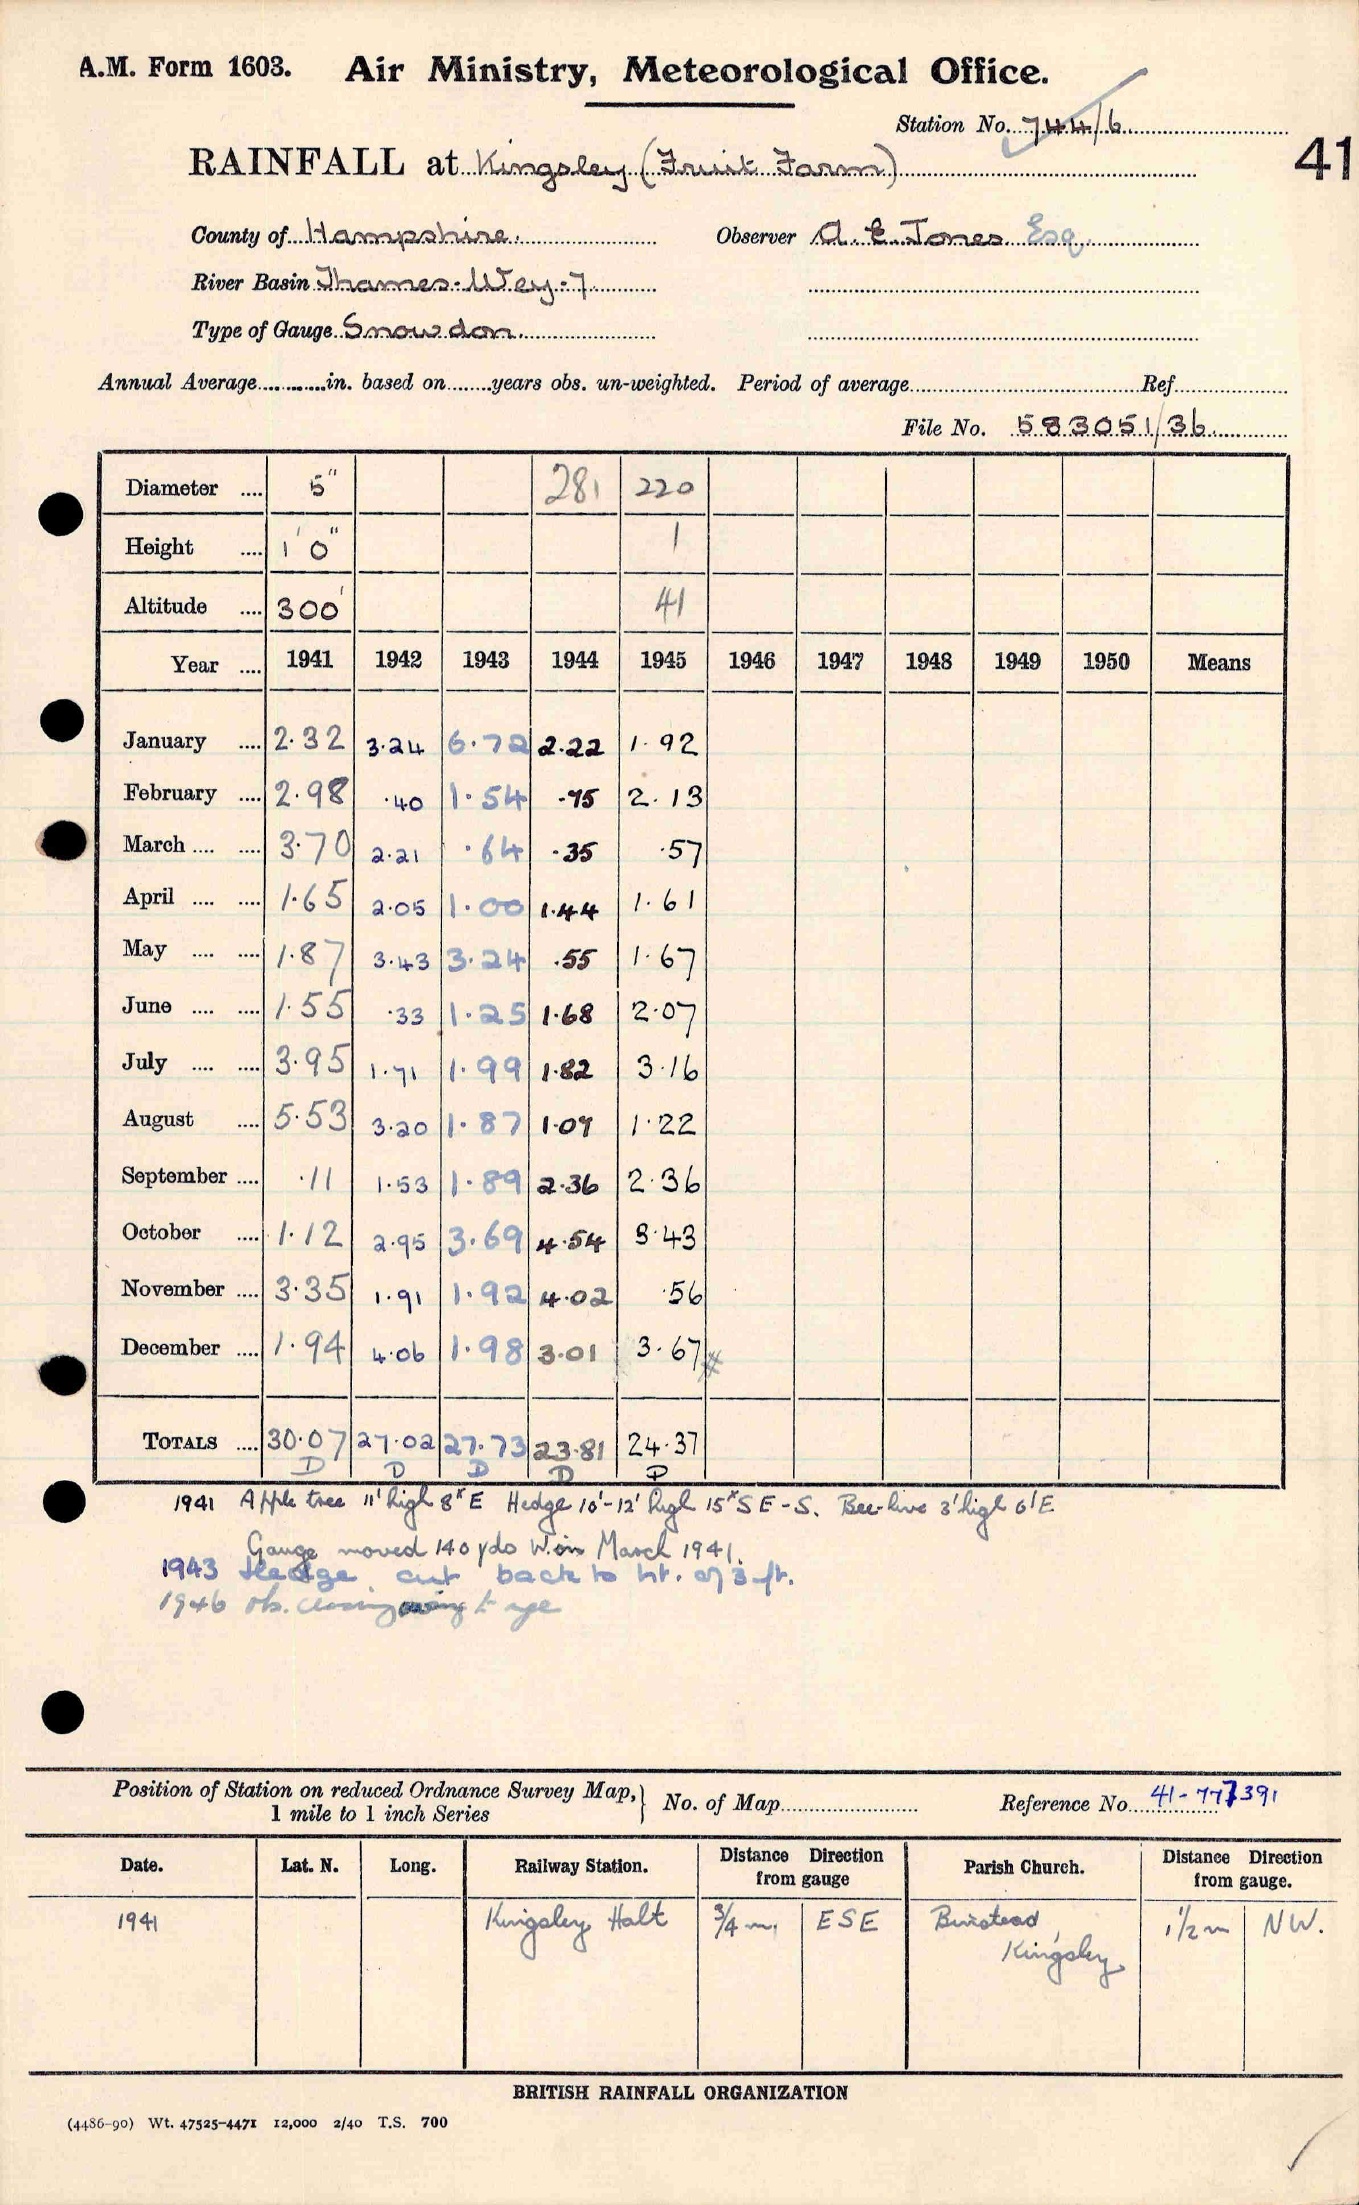 A.M. Form 1603. Air Ministry, Meteorological Office.
Station No. 744/6.
41
RAINFALL at Kingsley (Fruit Farm)
County of Hampshire. Observer A. E. Jones Esq.
River Basin Thames-Wey-7
Type of Gauge Snowdon.
Annual Average............in. based on........years obs. un-weighted. Period of average............Ref............
File No. 583051/36.
Diameter .... 5" 281 220
Height .... 1' 0" 1
Altitude .... 300' 41
Year .... 1941 1942 1943 1944 1945 1946 1947 1948 1949 1950 Means
January .... 2.32 3.24 6.72 2.22 1.92
February .... 2.98 .40 1.54 .75 2.13
March .... .... 3.70 2.21 .64 .35 .57
April .... .... 1.65 2.05 1.00 1.44 1.61
May .... .... 1.87 3.43 3.24 .55 1.67
June .... .... 1.55 .33 1.25 1.68 2.07
July .... .... 3.95 1.71 1.99 1.82 3.16
August .... 5.53 3.20 1.87 1.07 1.22
September .... .11 1.53 1.89 2.36 2.36
October .... 1.12 2.95 3.69 4.54 3.43
November .... 3.35 1.91 1.92 4.02 .56
December .... 1.94 4.06 1.98 3.01 3.67
TOTALS .... 30.07 27.02 27.73 23.81 24.37
D D D D D
1941 Apple tree 11' high 8x E Hedge 10'-12' high 15x SE-S. Bee-hive 3' high 6' E
Gauge moved 140 yds W. in March 1941.
1943 Hedge cut back to ht. of 3 ft.
1946 Ob. closing owing to age
Position of Station on reduced Ordnance Survey Map, 1 mile to 1 inch Series } No. of Map............ Reference No. 41-777391
Date. Lat. N. Long. Railway Station. Distance Direction from gauge Parish Church. Distance Direction from gauge.
1941 Kingsley Halt 3/4 m. ESE Binstead, Kingsley 1 1/2 m NW.
BRITISH RAINFALL ORGANIZATION
(4486-90) Wt. 47525-4471 12,000 2/40 T.S. 700